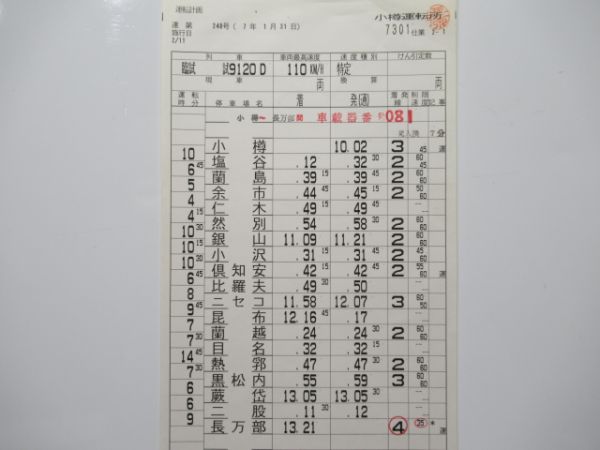 運転計画
運 第 248号 ( 7年 1月31日)
施行日
2/11
小樽運転所
7301 仕業 2- 1
列 車 車両最高速度 速度種別 けん引定数
臨試 試9120D 110KM/H 特定
現 車 両 換 算 両
運転時分 停車場名 着 発(通) 着発線 制限速度 記事
小樽~長万部間 車載器番号081
出入換 7分
小樽 10.02 3 45 運
10
塩谷 .12 .32 30 2 60
6 45
蘭島 .39 15 .39 45 2 60
5
余市 .44 45 .45 15 2 50 60
4
仁木 .49 15 .49 45
4 15
然別 .54 .58 30 2 60 60
10 30
銀山 11.09 11.21 2 60 60
10 15
小沢 .31 15 .31 45 2 45 60
10 30
倶知安 .42 15 .42 45 2 55 60 運
6 45
比羅夫 .49 30 .50
8
ニセコ 11.58 12.07 3 60 50
9 45
昆布 12.16 45 .17
7
蘭越 .24 .24 30 2 60 60
7 30
目名 .32 .32 15
14 45
熱郛 .47 .47 30 2 60 60
7 30
黒松内 .55 .59 3 60 60
6
蕨岱 13.05 13.05 30
6
二股 .11 30 .12
9
長万部 13.21 4 25 * 運